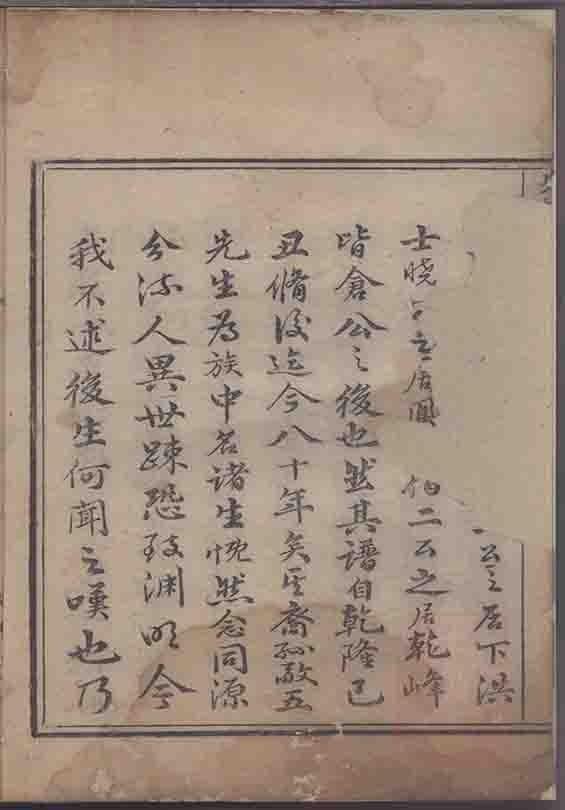 公之居下洪
士曉之居鳳 伯二公之居乾峰
皆倉公之後也然其譜自乾隆己
丑脩後迄今八十年矣其裔孙敬五
先生為族中名諸生慨然念同源
分流人異世踈恐致淵明今
我不述後生何聞之嘆也乃